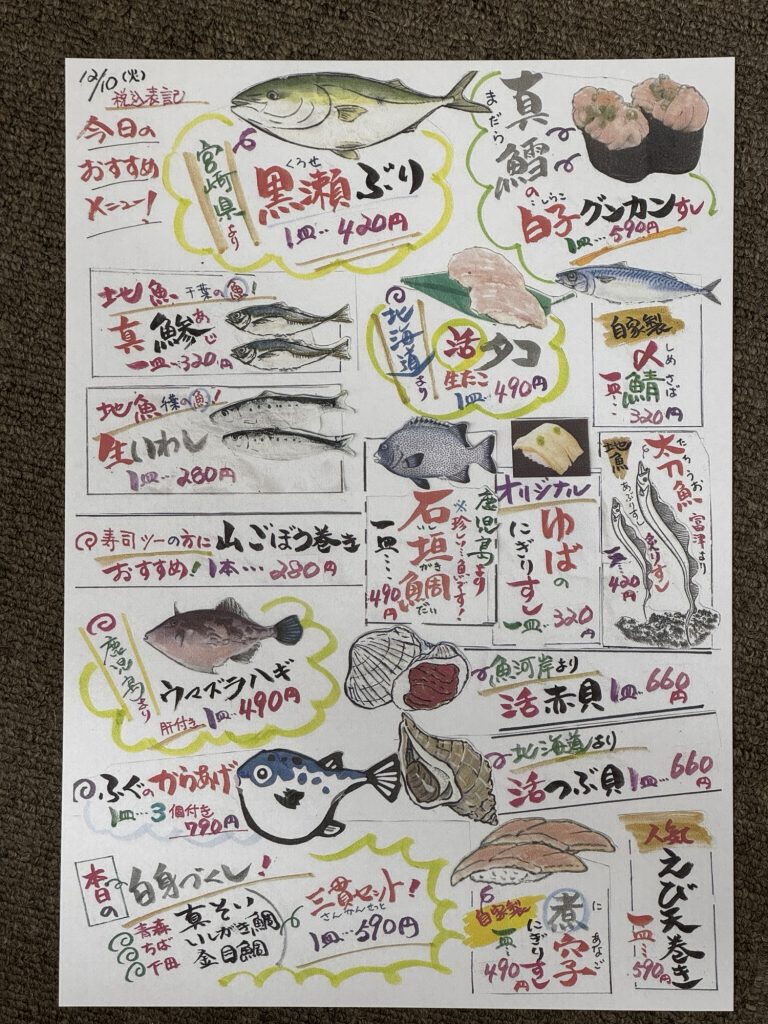 12/10(火)
税込表記
今日の
おすすめ
メニュー!
宮崎県より
くろせ
黒瀬ぶり
1皿…420円
まだら
真鱈の
しらこ
白子グンカンすし
1皿…590円
地魚 千葉の魚!
真鯵
あじ
一皿…320円
北海道より
活タコ
生たこ
1皿…490円
自家製
〆鯖
しめさば
一皿…320円
地魚 千葉の魚!
生いわし
1皿…280円
鹿児島より
※珍しい魚です!
石垣鯛
いしがきだい
一皿…490円
オリジナル
ゆばの
にぎりすし
一皿…320円
地魚
たちうお
太刀魚
富津より
あぶりすし
一皿…420円
寿司ツーの方に
おすすめ!
山ごぼう巻き
1本…280円
鹿児島より
ウマズラハギ
肝付き
1皿…490円
魚河岸より
活赤貝 1皿…660円
北海道より
活つぶ貝 1皿…660円
ふぐのからあげ
1皿…3個付き
790円
本日の
白身づくし!
青森 真そい
ちば いしがき鯛
下田 金目鯛
三貫セット!
さんかんせっと
1皿…590円
自家製
煮穴子
にあなご
にぎりすし
一皿…490円
人気
えび天巻き
一皿…590円